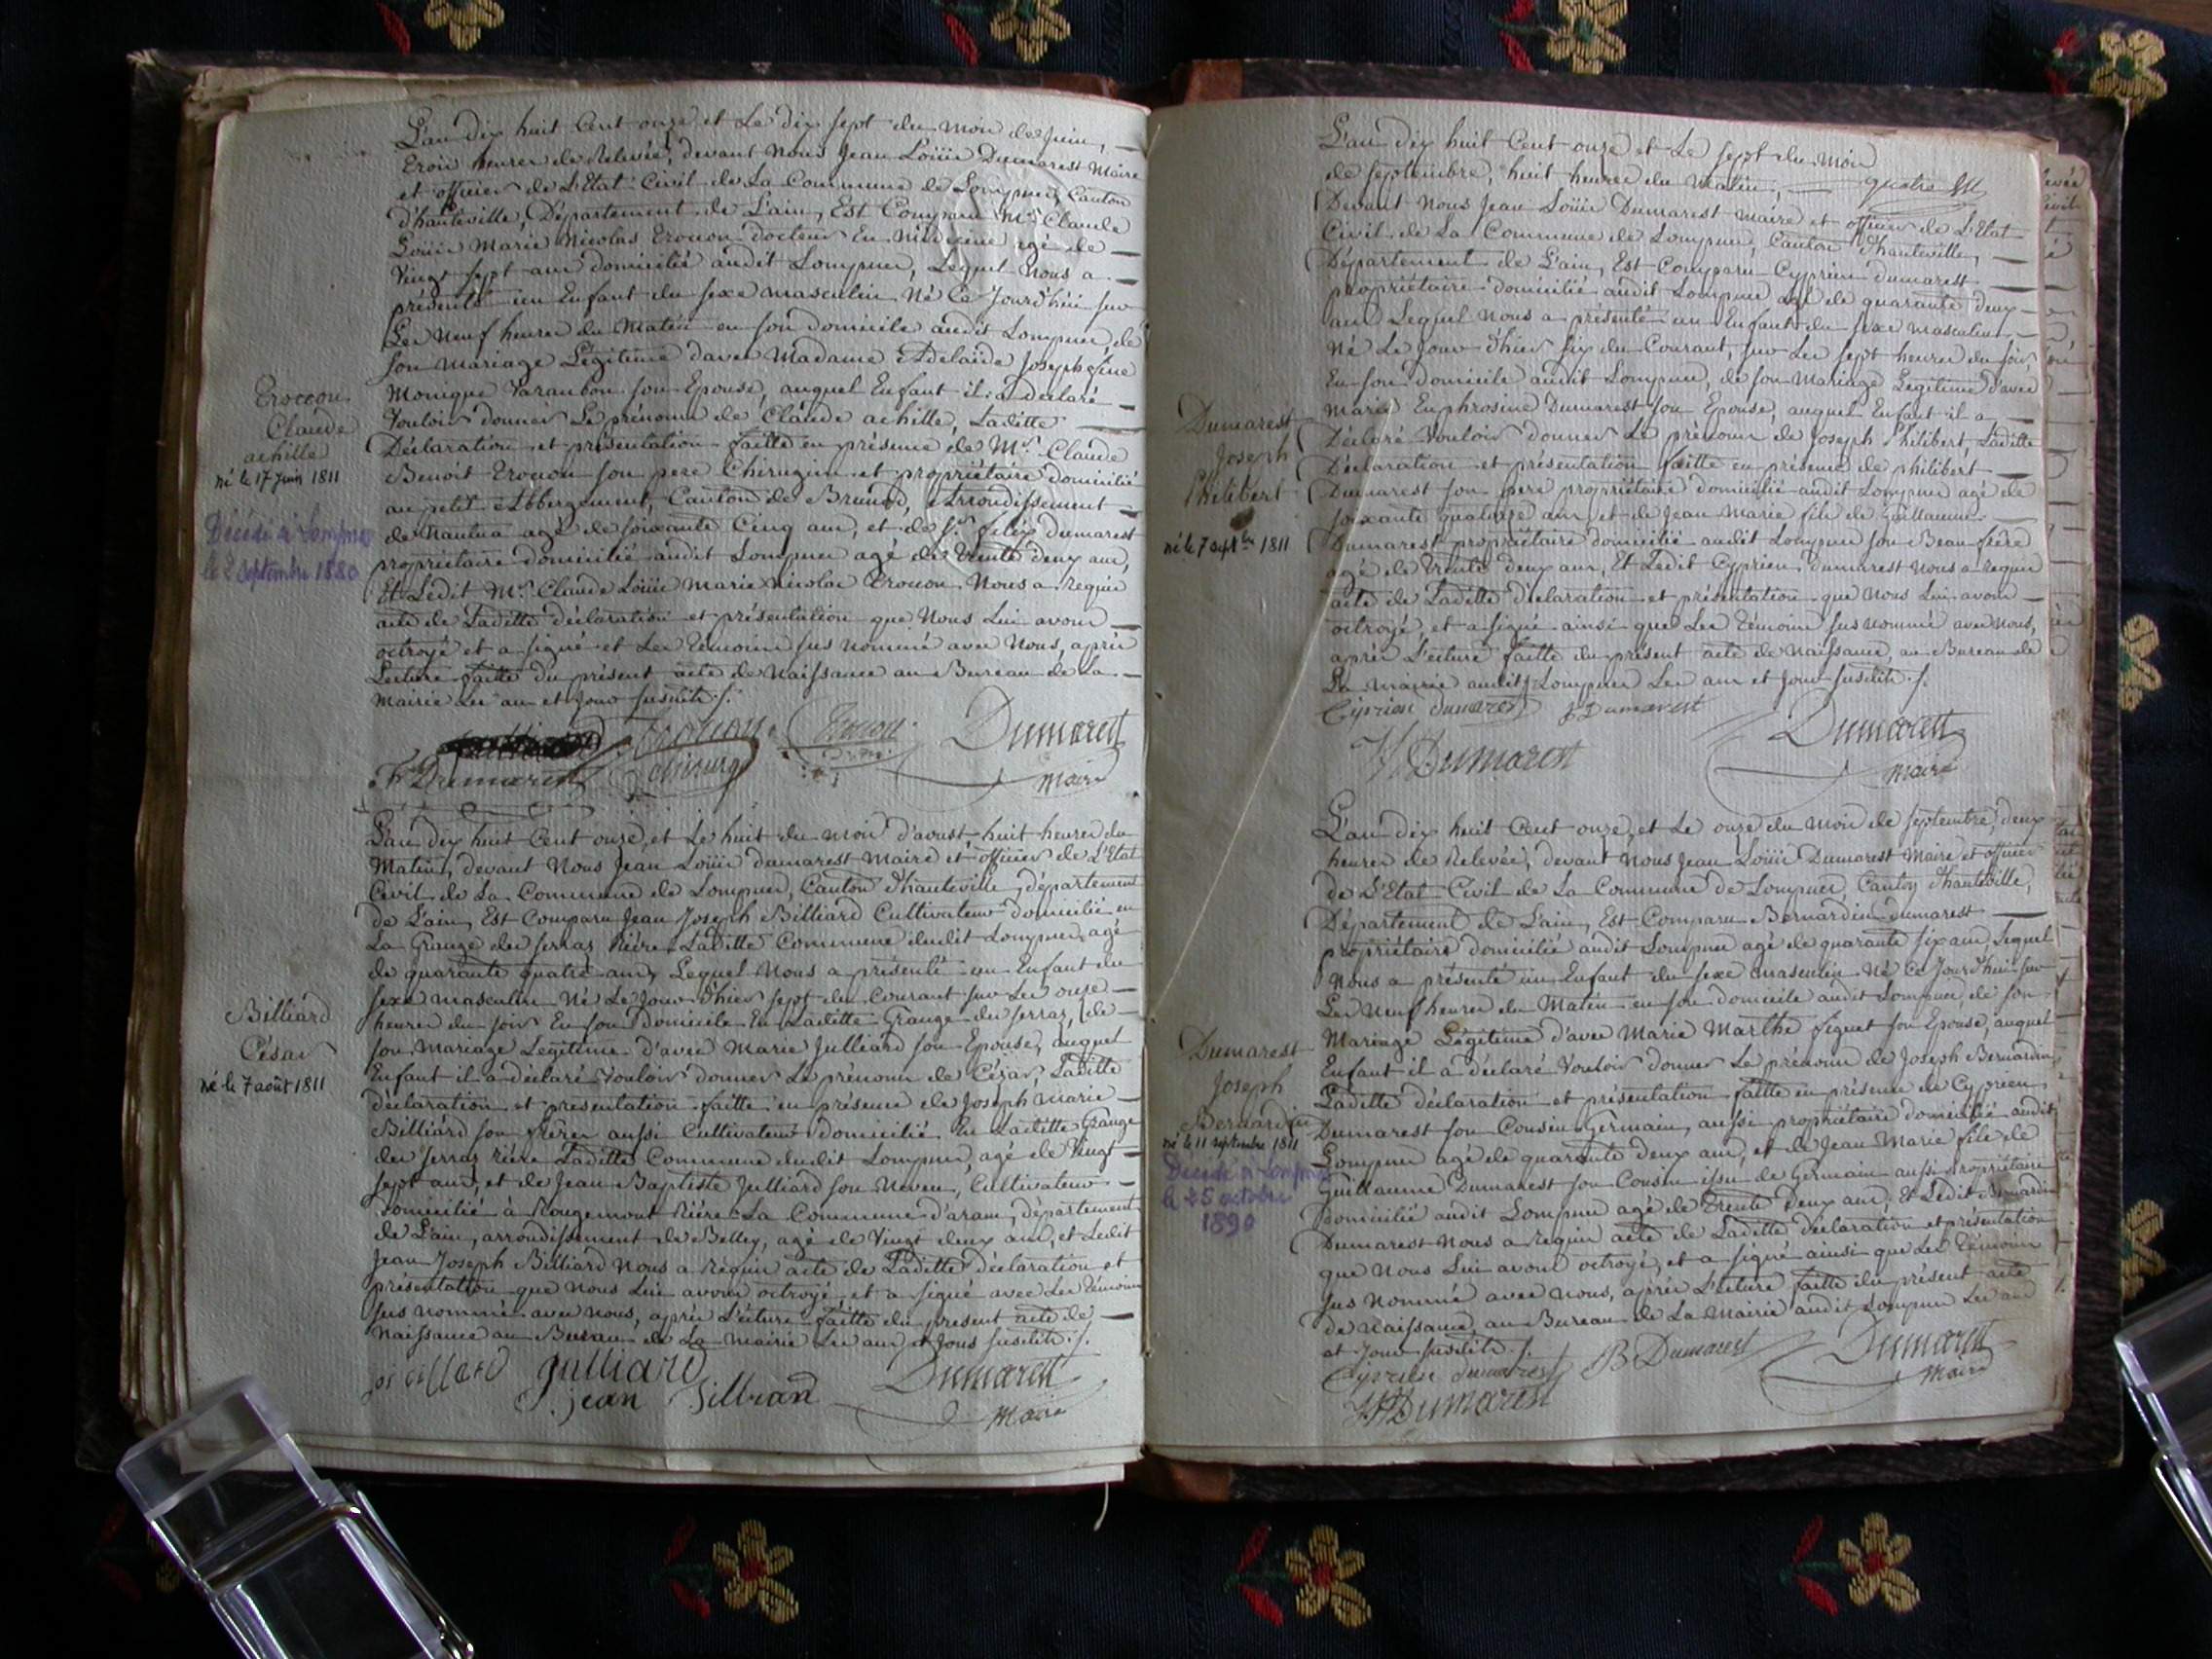 L'an dix huit Cent onze et Le dix sept du mois de Juin,
Trois heures de Relevée, devant Nous Jean Loüis Dumarest Maire
et officier de L'Etat Civil de La Commune de Lompnes, Canton
d'hauteville, Département de L'ain, Est Comparu Mr. Claude
Loüis Marie Nicolas Trocon docteur En Médecine agé de
Vingt sept ans domicilié audit Lompnes, Lequel Nous a
présenté un Enfant du sexe masculin Né Ce Jourd'hui sur
Les Neuf heures du Matin en son domicile audit Lompnes, de
son Mariage Légitime d'avec Madame Adelaïde Josephine
Monique Varanbon son Epouse, auquel Enfant il a déclaré
Vouloir donner Le prénoms de Claude achille, Laditte
Déclaration et présentation faitte en présence de Mr. Claude
Benoit Trocon son pere Chirugien et propriétaire domicilié
au petit Abbergement, Canton de Brenod, Arrondissement
de Nantua agé de soixante Cinq ans, et de sr. felix Dumarest
propriétaire domicilié audit Lompnes agé de Trente deux ans,
Et Ledit Mr. Claude Loüis Marie Nicolas Trocon Nous a requis
acte de Laditte déclaration et présentation que Nous Lui avons
octroyé et a signé et Les Témoins sus nommé avec Nous, après
Lecture faitte du présent acte de Naissance au Bureau de La
Mairie Les an et Jour susdits ./.
Trocon
Dumarest
F. Dumarest
chirurg
Maire
Trocon
Claude
achille
né le 17 juin 1811
Décédé à Lompnes
le 2 septembre 1880
L'an dix huit Cent onze, et Le huit du mois d'aoust huit heures du
Matin, devant Nous Jean Loüis dumarest Maire et officier de L'Etat
Civil de La Commune de Lompnes, Canton d'hauteville, département
de L'ain, Est Comparu Jean Joseph Billiard Cultivateur domicilié en
La Grange des serraz Rière Laditte Commune dudit Lompnes, agé
de quarante quatre ans, Lequel Nous a présenté un Enfant du
sexe masculin Né Le Jour d'hier sept du Courant sur Les onze
heures du soir En son domicile En Laditte Grange des serraz, de
son Mariage Legitime d'avec Marie Julliard son Epouse, auquel
Enfant il a déclaré Vouloir donner Le prénoms de Cézar, Laditte
déclaration et presentation faitte en présence de Joseph Marie
Billiard son frère aussi Cultivateur domicilié En Laditte Grange
des serraz rière Laditte Commune dudit Lompnes, agé de Vingt
sept ans, et de Jean Baptiste Julliard son Neveu, Cultivateur
domicilié à Rougemont Rière La Commune d'aran, département
de L'ain, arrondissement de Belley, agé de Vingt deux ans, et Ledit
Jean Joseph Billiard Nous a requis acte de Laditte déclaration et
présentation que Nous Lui avons octroyé, et a signé avec Les Témoins
sus nommé avec nous, après Lecture faitte du present acte de
Naissance au Bureau de La Mairie Les an et Jour susdits ./.
julliard
Dumarest
jean
Maire
Billiard
César
né le 7 août 1811
L'an dix huit Cent onze et Le sept du mois
de septembre, huit heures du Matin,
Devant Nous Jean Loüis Dumarest Maire et officier de L'Etat
Civil de La Commune de Lompnes, Canton d'hauteville,
Département de L'ain, Est Comparu Cyprien dumarest
propriétaire domicilié audit Lompnes agé de quarante deux
ans Lequel Nous a présenté un Enfant du sexe masculin,
Né Le Jour d'hier six du Courant, sur Les sept heures du soir
En son domicile audit Lompnes, de son Mariage Légitime d'avec
Marie Euphrosine Dumarest son Epouse, auquel Enfant il a
Déclaré Vouloir donner Le prénoms de Joseph Philibert, Laditte
Déclaration et présentation faitte en présence de philibert
Dumarest son pere propriétaire domicilié audit Lompnes agé de
soixante quatorze ans et de Jean Marie fils de Guillaume
Dumarest propriétaire domicilié audit Lompnes son Beau frère
agé de Trente deux ans, Et Ledit Cyprien dumarest Nous a requis
acte de Laditte déclaration et présentation que Nous Lui avons
octroyé, et a signé ainsi que Les Témoins sus nommé avec Nous,
après Lecture faitte du présent acte de Naissance, au Bureau de
La Mairie audit Lompnes Les an et Jour susdits ./.
Ciprien dumarest
Dumarest
Dumarest
Dumarest
Maire
Dumarest
Joseph
Philibert
né le 7 septbre 1811
L'an dix huit Cent onze, et Le onze du mois de septembre, deux
heures de Relevée, devant Nous Jean Loüis Dumarest Maire et officier
de L'Etat Civil de La Commune de Lompnes, Canton d'hauteville,
Département de L'ain, Est Comparu Bernardin dumarest
propriétaire domicilié audit Lompnes agé de quarante six ans, Lequel
Nous a présenté un Enfant du sexe masculin Né Ce Jourd'hui sur
Les Neuf heures du Matin en son domicile audit Lompnes de son
Mariage Légitime d'avec Marie Marthe figuet son Epouse, auquel
Enfant il a déclaré Vouloir donner Le prénoms de Joseph Bernardin,
Laditte déclaration et présentation faitte en présence de Cyprien
Dumarest son Cousin Germain, aussi propriétaire domicilié audit
Lompnes agé de quarante deux ans, et de Jean Marie fils de
Guillaume Dumarest son Cousin issu de Germain aussi propriétaire
domicilié audit Lompnes agé de Trente deux ans, Et Ledit Bernardin
Dumarest Nous a requis acte de Laditte déclaration et présentation
que Nous Lui avons octroyé, et a signé ainsi que Les Témoins
sus Nommé avec Nous, après Lecture faitte du présent acte
de Naissance, au Bureau de La Mairie audit Lompnes Les an
et Jour susdits ./.
Ciprien dumarest
B. Dumarest
Dumarest
Dumarest
Maire
Dumarest
Joseph
Bernardin
né le 11 septembre 1811
Décédé à Lompnes
le 25 octobre
1890